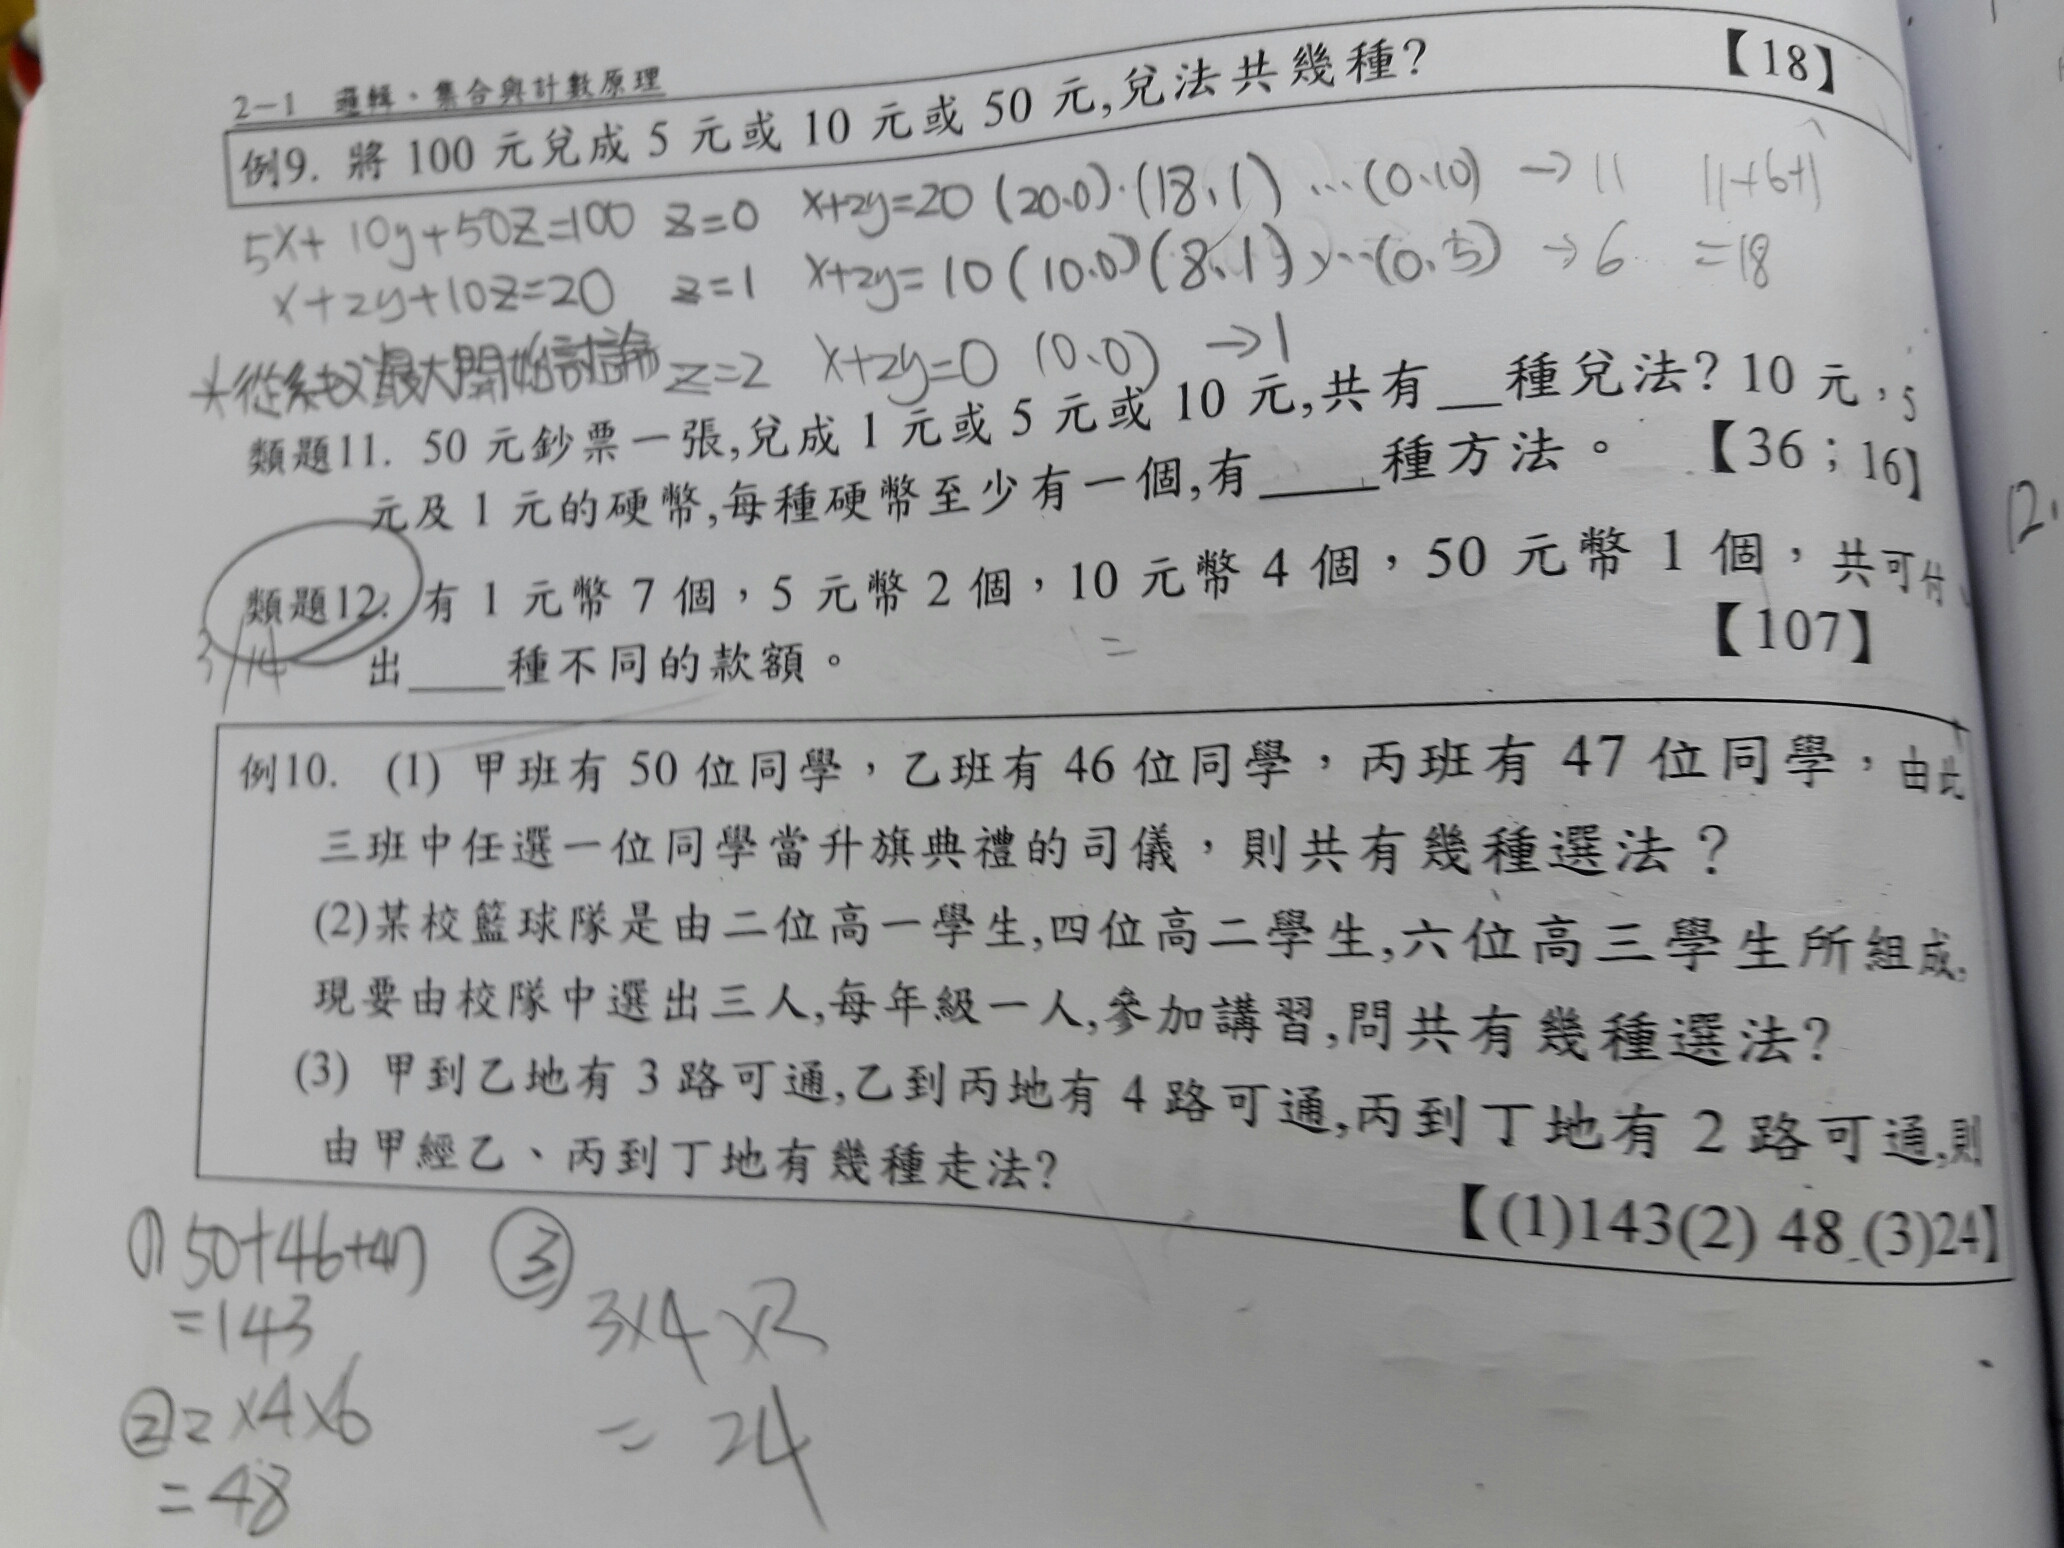 2-1 邏輯、集合與計數原理
例9. 將 100 元兌成 5 元或 10 元或 50 元,兌法共幾種? 【18】
5x+10y+50z=100 z=0 x+2y=20 (20,0)、(18,1) …(0,10) → 11 11+6+1
x+2y+10z=20 z=1 x+2y=10 (10,0)(8,1)、…(0,5) → 6 =18
*從系數最大開始討論 z=2 x+2y=0 (0,0) → 1
類題11. 50 元鈔票一張,兌成 1 元或 5 元或 10 元,共有__種兌法? 10 元,5
元及 1 元的硬幣,每種硬幣至少有一個,有____種方法。 【36;16】
類題12. 有 1 元幣 7 個,5 元幣 2 個,10 元幣 4 個,50 元幣 1 個,共可付
3/14 出____種不同的款額。 = 【107】
例10. (1) 甲班有 50 位同學,乙班有 46 位同學,丙班有 47 位同學,由此
三班中任選一位同學當升旗典禮的司儀,則共有幾種選法?
(2)某校籃球隊是由二位高一學生,四位高二學生,六位高三學生所組成,
現要由校隊中選出三人,每年級一人,參加講習,問共有幾種選法?
(3) 甲到乙地有 3 路可通,乙到丙地有 4 路可通,丙到丁地有 2 路可通,則
由甲經乙、丙到丁地有幾種走法?
【(1)143(2) 48 (3)24】
(1) 50+46+47
=143
② 2×4×6
=48
③
3×4×2
= 24
12.